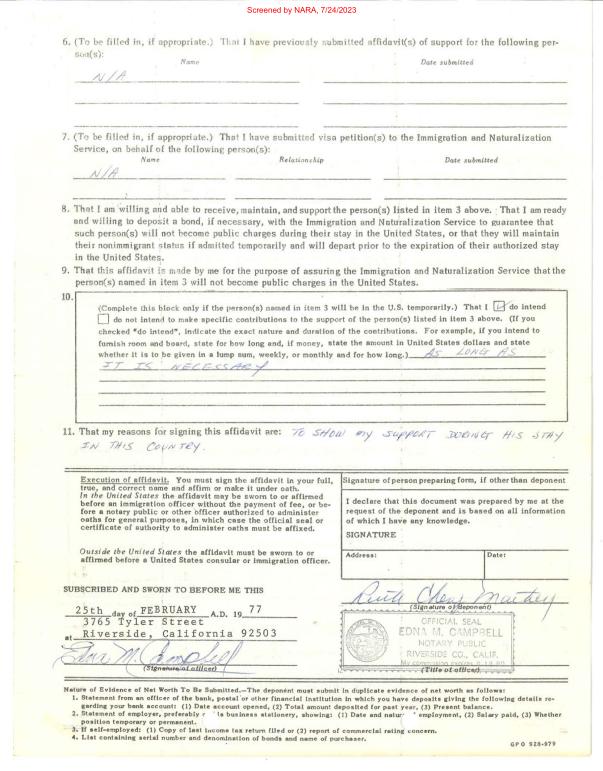 Screened by NARA, 7/24/2023
6. (To be filled in, if appropriate.) That I have previously submitted affidavit(s) of support for the following per-
son(s):
Name Date submitted
N/A
7. (To be filled in, if appropriate.) That I have submitted visa petition(s) to the Immigration and Naturalization
Service, on behalf of the following person(s):
Name Relationship Date submitted
N/A
8. That I am willing and able to receive, maintain, and support the person(s) listed in item 3 above. That I am ready
and willing to deposit a bond, if necessary, with the Immigration and Naturalization Service to guarantee that
such person(s) will not become public charges during their stay in the United States, or that they will maintain
their nonimmigrant status if admitted temporarily and will depart prior to the expiration of their authorized stay
in the United States.
9. That this affidavit is made by me for the purpose of assuring the Immigration and Naturalization Service that the
person(s) named in item 3 will not become public charges in the United States.
10.
(Complete this block only if the person(s) named in item 3 will be in the U.S. temporarily.) That I do intend
do not intend to make specific contributions to the support of the person(s) listed in item 3 above. (If you
checked "do intend", indicate the exact nature and duration of the contributions. For example, if you intend to
furnish room and board, state for how long and, if money, state the amount in United States dollars and state
whether it is to be given in a lump sum, weekly, or monthly and for how long.) AS LONG AS
IT IS NECESSARY
11. That my reasons for signing this affidavit are: TO SHOW MY SUPPORT DURING HIS STAY
IN THIS COUNTRY.
Execution of affidavit. You must sign the affidavit in your full,
true, and correct name and affirm or make it under oath.
In the United States the affidavit may be sworn to or affirmed
before an immigration officer without the payment of fee, or be-
fore a notary public or other officer authorized to administer
oaths for general purposes, in which case the official seal or
certificate of authority to administer oaths must be affixed.
Outside the United States the affidavit must be sworn to or
affirmed before a United States consular or immigration officer.
Signature of person preparing form, if other than deponent
I declare that this document was prepared by me at the
request of the deponent and is based on all information
of which I have any knowledge.
SIGNATURE
Address: Date:
SUBSCRIBED AND SWORN TO BEFORE ME THIS
25th day of FEBRUARY A.D. 19 77
3765 Tyler Street
at Riverside, California 92503
Edna M. Campbell
(Signature of officer)
Ruth
(Signature of deponent)
OFFICIAL SEAL
EDNA M. CAMPBELL
NOTARY PUBLIC
RIVERSIDE CO., CALIF.
My commission expires
(Title of officer)
Nature of Evidence of Net Worth To Be Submitted.—The deponent must submit in duplicate evidence of net worth as follows:
1. Statement from an officer of the bank, postal or other financial institution in which you have deposits giving the following details re-
garding your bank account: (1) Date account opened, (2) Total amount deposited for past year, (3) Present balance.
2. Statement of employer, preferably s business stationery, showing: (1) Date and natur employment, (2) Salary paid, (3) Whether
position temporary or permanent.
3. If self-employed: (1) Copy of last income tax return filed or (2) report of commercial rating concern.
4. List containing serial number and denomination of bonds and name of purchaser.
GPO 928-979